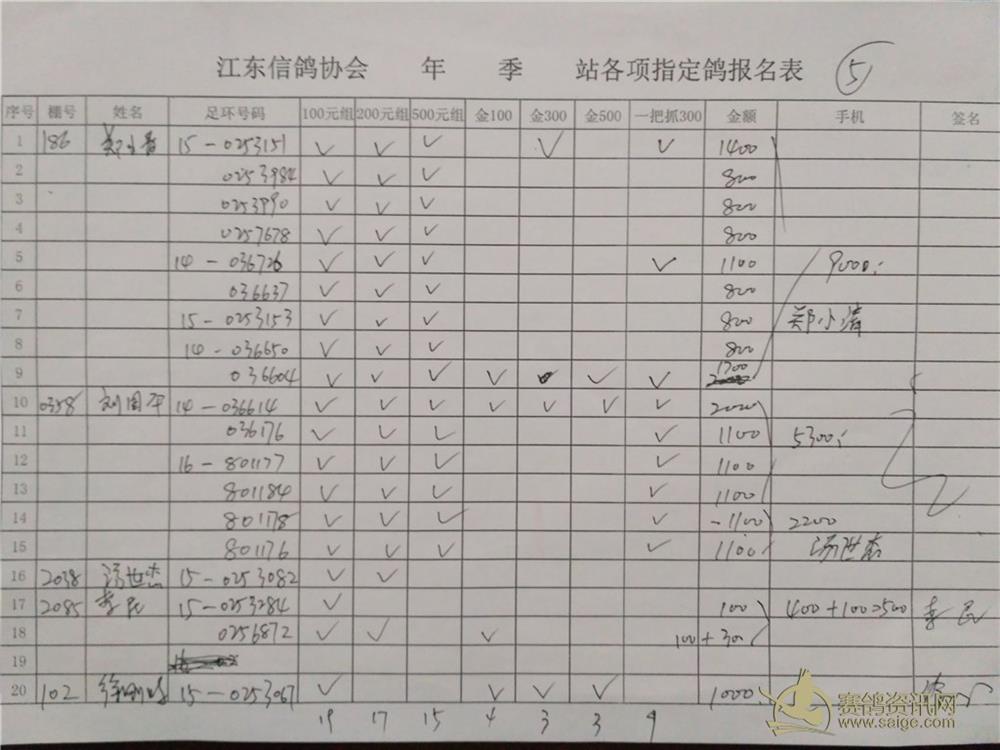 江东信鸽协会 年 季 站各项指定鸽报名表 ⑤
序号 棚号 姓名 足环号码 100元组 200元组 500元组 金100 金300 金500 一把抓300 金额 手机 签名
1 186 郑小清 15-0253151 ✓ ✓ ✓ ✓ ✓ 1400
2 0253984 ✓ ✓ ✓ 800
3 0253990 ✓ ✓ ✓ 800
4 0257678 ✓ ✓ ✓ 800
5 14-036726 ✓ ✓ ✓ ✓ 1100 9000:
6 036637 ✓ ✓ ✓ 800
7 15-0253153 ✓ ✓ ✓ 800 郑小清
8 14-036650 ✓ ✓ ✓ 800
9 036604 ✓ ✓ ✓ ✓ ✓ ✓ 1700
10 0358 刘国平 14-036614 ✓ ✓ ✓ ✓ ✓ ✓ ✓ 2000
11 036176 ✓ ✓ ✓ ✓ 1100 5300:
12 16-801177 ✓ ✓ ✓ ✓ 1100
13 801184 ✓ ✓ ✓ ✓ 1100
14 801178 ✓ ✓ ✓ ✓ -1100 2200
15 801176 ✓ ✓ ✓ ✓ 1100 汤世杰
16 2038 汤世杰 15-0253082 ✓ ✓
17 2085 李民 15-0253284 ✓ 100 400+100=500 李民
18 0256872 ✓ ✓ ✓ 100+300
19
20 102 徐 15-0253067 ✓ ✓ ✓ ✓ 1000
19 17 15 4 3 3 9
赛鸽资讯网
www.saige.com